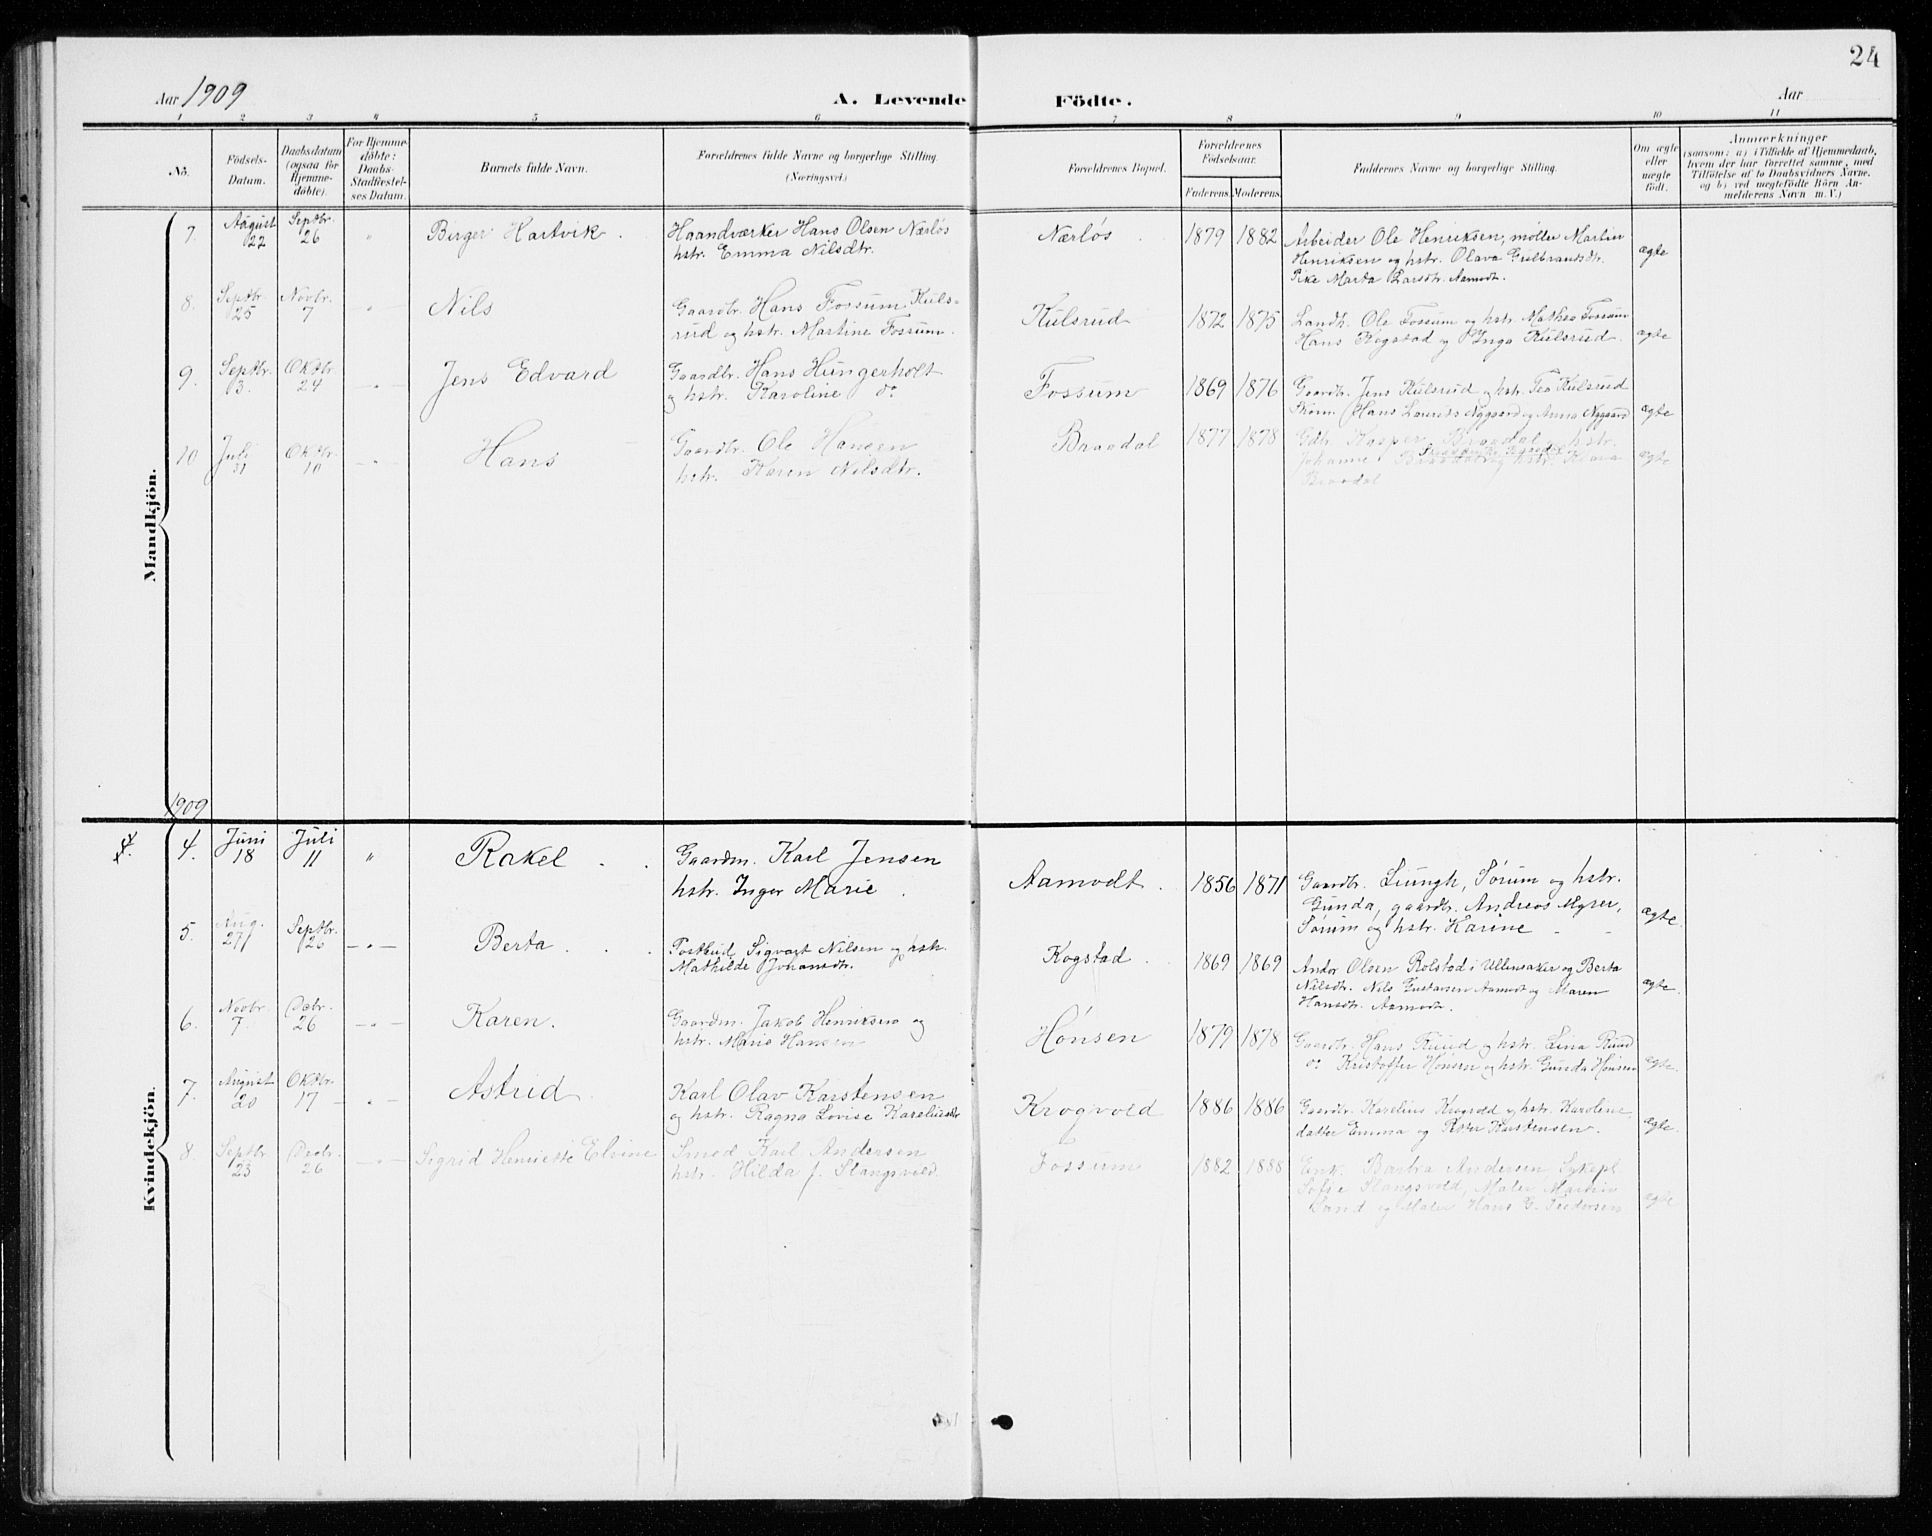 24
Aar 1909
A. Levende Födte.
Aar
1 2 3 4 5 6 7 8 9 10 11
No.
Födsels-Datum.
Daabsdatum (ogsaa for Hjemmedöbte).
For Hjemmedöbte: Daabs-Stadfæstelses Datum.
Barnets fulde Navn.
Forældrenes fulde Navne og borgerlige Stilling. (Næringsvei.)
Forældrenes Bopæl.
Forældrenes Födselsaar.
Faderens. Moderens.
Faddernes Navne og borgerlige Stilling.
Om ægte eller uægte födt.
Anmærkninger
(saasom: a) i Tilfælde af Hjemmedaab, hvem der har forrettet samme, med Tilföielse af to Daabsvidners Navne, og b) ved uægtefödte Börn Anmelderens Navn m. V.)
Mandkjön.
7. August 22 Septbr. 26 " Birger Hartvik. Haandværker Hans Olsen Nærløs
hstr. Emma Nilsdtr.
Nærløs 1879 1882 Arbeider Ole Henriksen, møller Martin
Henriksen og hstr. Olava Gulbrandsdtr.
Pike Marta Larsdtr. Aamodt.
ægte
8. Septbr. 25 Novbr. 7 — " — Nils Gaardbr. Hans Fossum Kuls-
rud og hstr. Martine Fossum.
Kulsrud 1872 1875 Landh. Ole Fossum og hstr. Mathea Fossum
Hans Kogstad og Inga Kulsrud.
ægte
9. Septbr. 3. Oktbr. 24 — " — Jens Edvard Gaardbr. Hans Hungerholt
og hstr. Karoline do
Fossum 1869 1876 Gaardbr. Jens Kulsrud og hstr. Tea Kulsrud
Skom. Hans Laurids Nygaard og Anna Nygaard
ægte
10 Juli 31 Oktbr. 10 — " — Hans Gaardbr. Ole Hansen
hstr. Karen Nilsdtr.
Braadal 1877 1878 Gdbr. Kasper Braadal og hstr.
Johanne Braadal og hstr. Klara
Braadal
ægte
1909
Kvindekjön.
4. Juni 18 Juli 11 " Rakel Gaardm. Karl Jensen
hstr. Inger Marie
Aamodt. 1856 1871 Gaardbr. Liungh, Sørum og hstr.
Gunda, gaardbr. Andreas Myrer,
Sørum og hstr. Karine
ægte.
5. Aug. 27 Septbr. 26 — " — Berta Postbud Sigvart Nilsen og hstr.
Mathilde Johansdtr.
Kogstad 1869 1869 Andor Olsen Rolstad i Ullensaker og Berta
Nilsdtr. Nils Gustavsen Aamodt og Maren
Hansdtr. Aamodt.
ægte.
6. Novbr. 7. Decbr. 26 — " — Karen. Gaardm. Jakob Henriksen og
hstr. Marie Hansen
Hønsen 1879 1878 Gaardbr. Hans Ruud og hstr. Lina Ruud
do Kristoffer Hønsen og hstr. Gunda Hønsen
ægte.
7. August 20 Oktbr. 17 — " — Astrid Karl Olav Karstensen
og hstr. Ragna Lovise Kareliusdtr
Krogvold 1886 1886 Gaardbr. Karelius Krogvold og hstr. Karoline,
datter Emma og Petter Karstensen.
ægte.
8. Septbr 23 Decbr. 26 — " — Sigrid Henriette Elvine Smed Karl Andersen
hstr. Hilda f. Slangsvold
Fossum 1882 1888 Enk. Barbra Andersen, Sykepl.
Sofie Slangsvold, Maler Martin
Sand og Maler Hans G. Pedersen
ægte